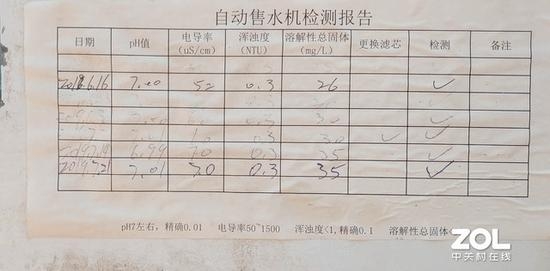 自动售水机检测报告
日期 pH值 电导率(uS/cm) 浑浊度(NTU) 溶解性总固体(mg/L) 更换滤芯 检测 备注
6.16 7.00 52 0.3 26 ✓
0.3 30
0.3 30 ✓ ✓
6.99 70 0.3 35 ✓
2019.7.21 7.01 70 0.3 35 ✓
pH7左右，精确0.01 电导率50~1500 浑浊度<1,精确0.1 溶解性总固体
ZOL
中关村在线